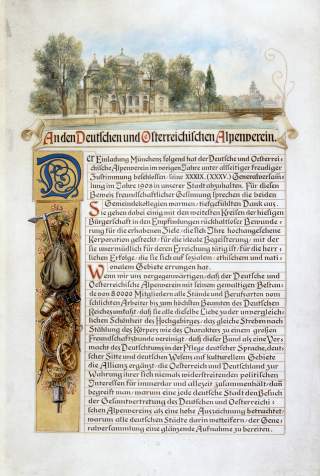 An den Deutschen und Österreichischen Alpenverein.
Der Einladung Münchens folgend hat der Deutsche und Österrei-
chische Alpenverein im vorigen Jahre unter allseitiger freudiger
Zustimmung beschlossen seine XXXIX. (XXXV.) Generalversam-
lung im Jahre 1908 in unserer Stadt abzuhalten. Für diesen
Beweis freundschaftlicher Gesinnung sprechen die beiden
Gemeindekollegien warmen, tiefgefühlten Dank aus.
Sie gehen dabei einig mit den weitesten Kreisen der hiesigen
Bürgerschaft in den Empfindungen rückhaltloser Bewunde-
rung für die erhabenen Ziele, die sich Ihre hochangesehene
Korporation gesteckt, für die ideale Begeisterung, mit der
sie unermüdlich für deren Erreichung tätig ist, für die herr-
lichen Erfolge, die sie sich auf sozialem, ethischem und nati-
onalem Gebiete errungen hat.
Wenn wir uns vergegenwärtigen, daß der Deutsche und
Österreichische Alpenverein mit seinem gewaltigen Bestan-
de von 80000 Mitgliedern alle Stände und Berufsarten vom
schlichten Arbeiter bis zum höchsten Beamten des Deutschen
Reiches umfaßt, daß sie alle dieselbe Liebe zu der unvergleich-
lichen Schönheit des Hochgebirges, das gleiche Streben nach
Stählung des Körpers wie des Charakters zu einem großen
Freundschaftsbunde vereinigt, daß dieser Bund als eine Vor-
macht des Deutschtums in der Pflege deutscher Sprache, deut-
scher Sitte und deutschen Wesens auf kulturellem Gebiete
die Allianz ergänzt, die Österreich und Deutschland zur
Wahrung ihrer sich niemals widerstreitenden politischen
Interessen für immerdar und allezeit zusammenhält, dann
begreift man, warum eine jede deutsche Stadt den Besuch
der Gesamtvertretung des Deutschen und Österreichi-
schen Alpenvereins als eine hohe Auszeichnung betrachtet,
warum alle deutschen Städte darin wetteifern, der Gene-
ralversammlung eine glänzende Aufnahme zu bereiten.